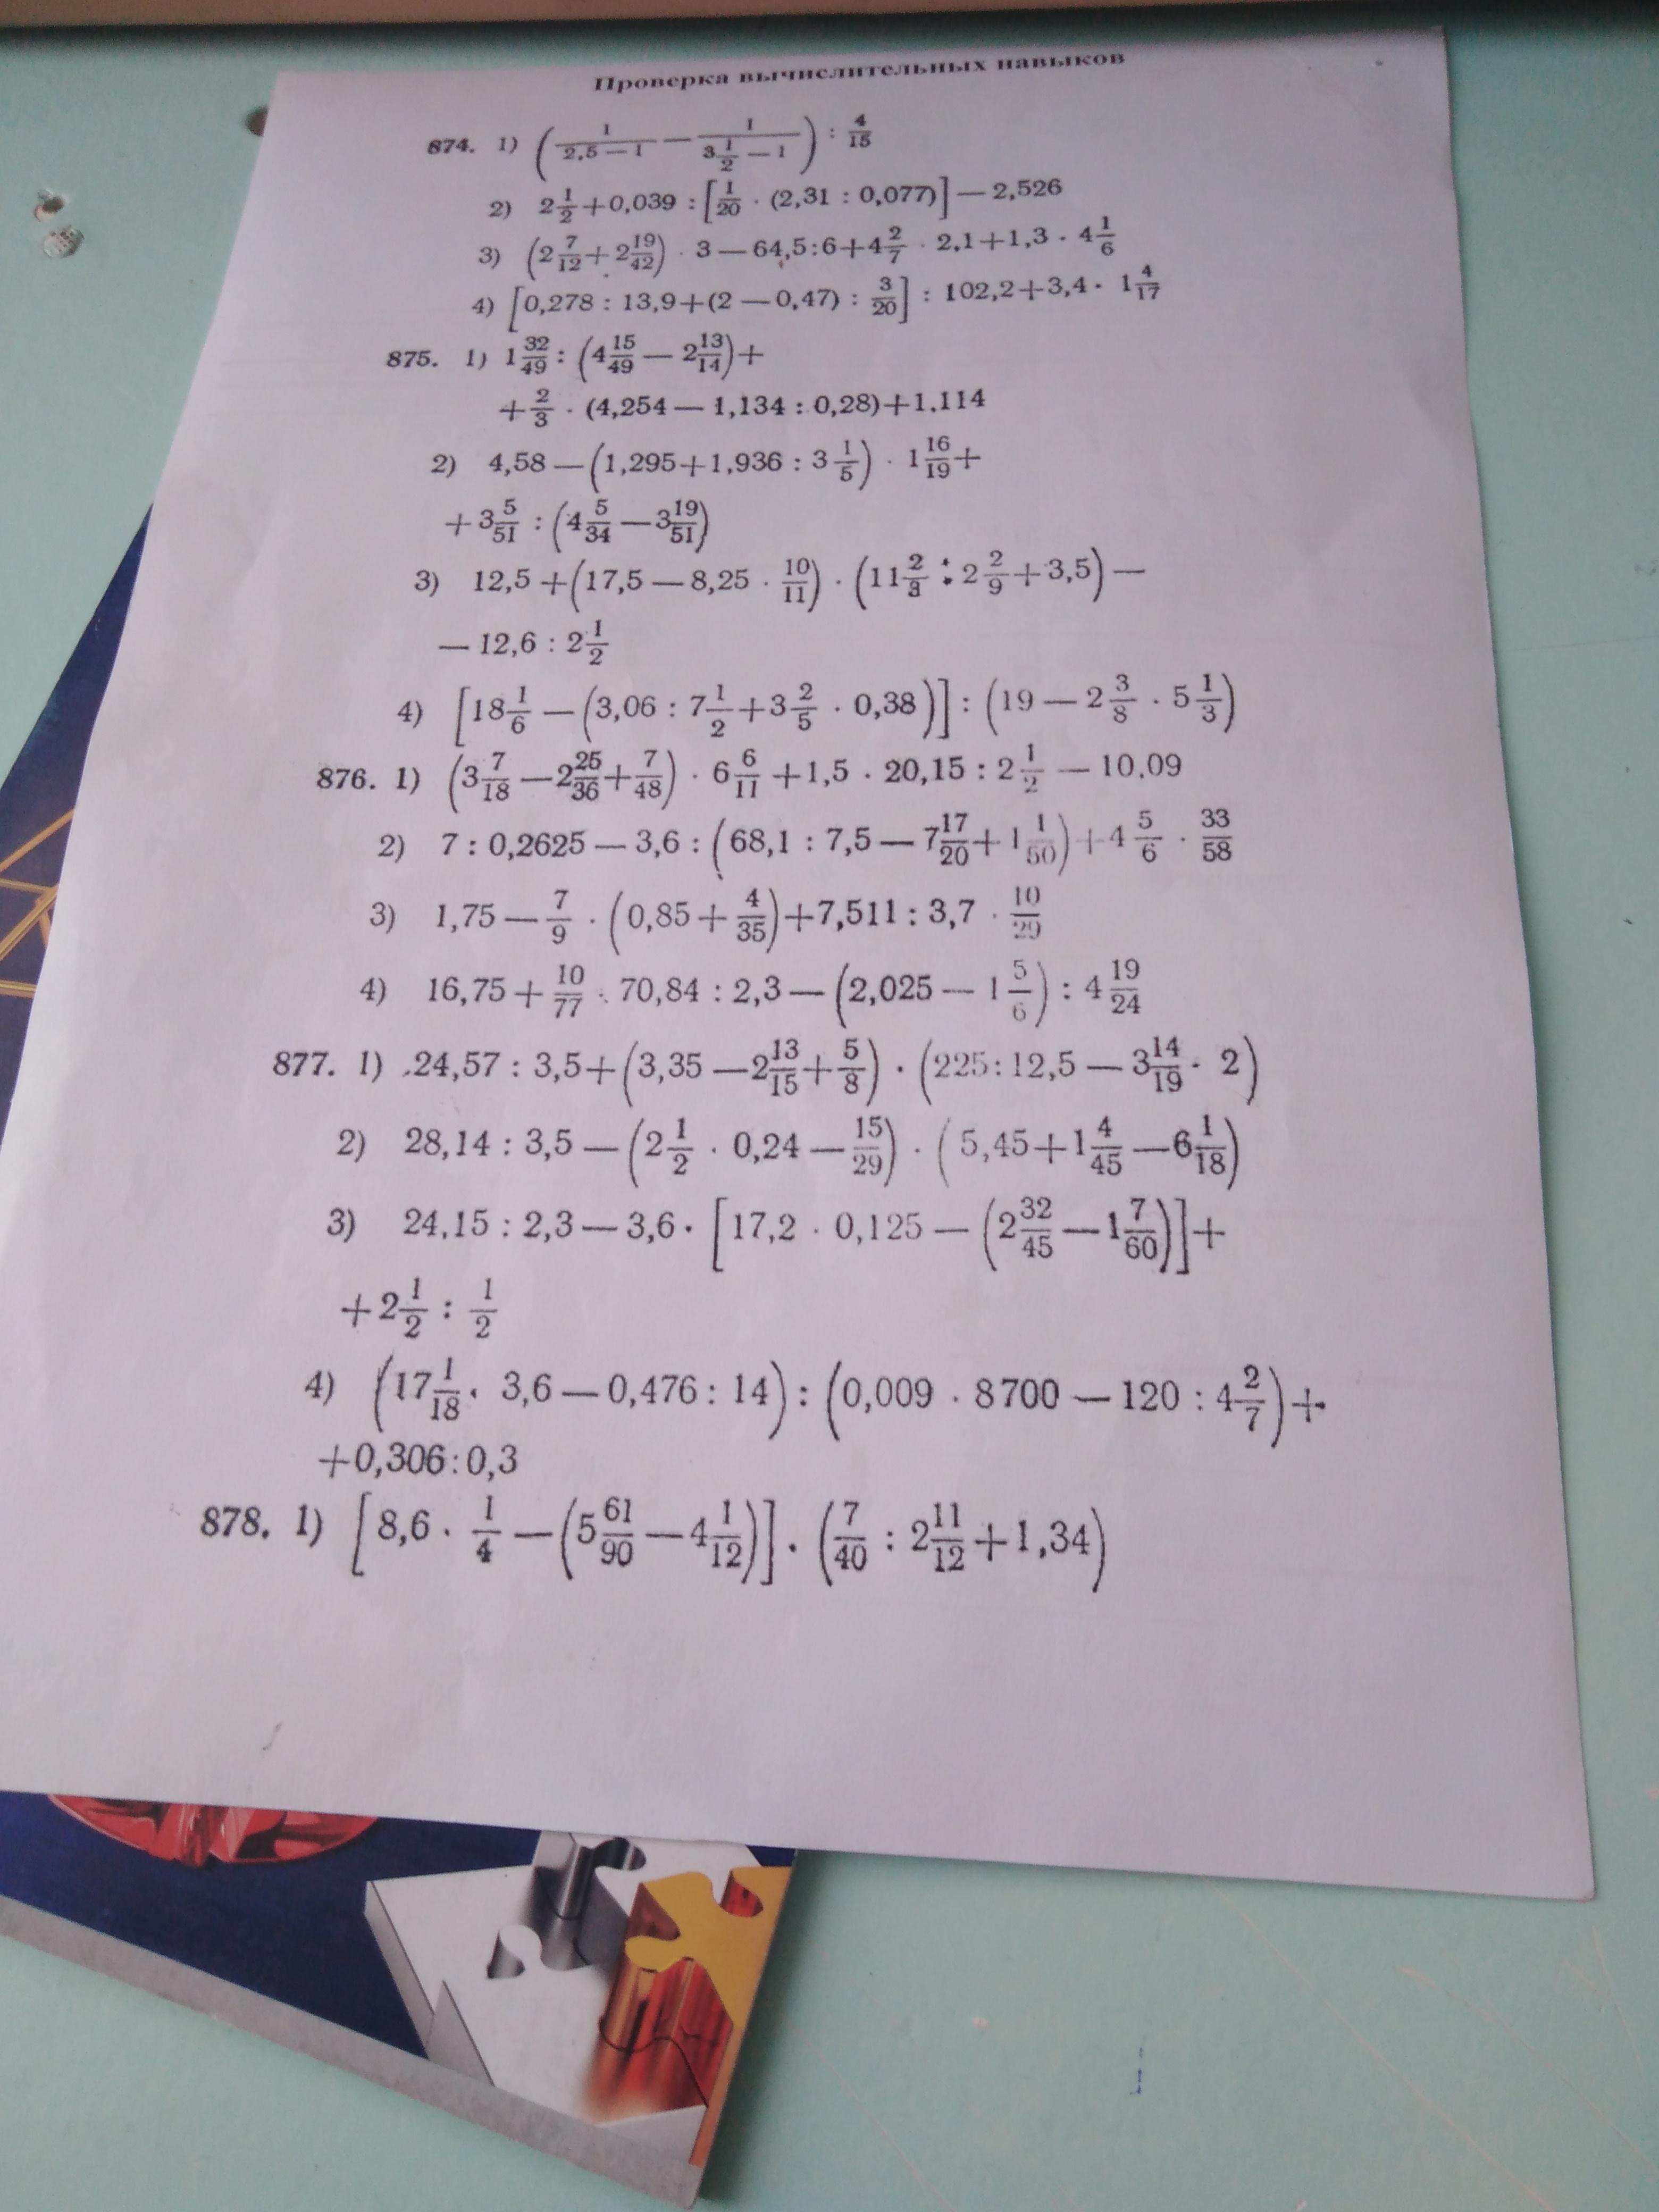 Проверка вычислительных навыков
874. 1) (1/(2,5 — 1) — 1/(3 1/2 — 1)) : 4/15
2) 2 1/2 + 0,039 : [1/20 · (2,31 : 0,077)] — 2,526
3) (2 7/12 + 2 19/42) · 3 — 64,5 : 6 + 4 2/7 · 2,1 + 1,3 · 4 1/6
4) [0,278 : 13,9 + (2 — 0,47) : 3/20] : 102,2 + 3,4 · 1 4/17
875. 1) 1 32/49 : (4 15/49 — 2 13/14) +
+ 2/3 · (4,254 — 1,134 : 0,28) + 1,114
2) 4,58 — (1,295 + 1,936 : 3 1/5) · 1 16/19 +
+ 3 5/51 : (4 5/34 — 3 19/51)
3) 12,5 + (17,5 — 8,25 · 10/11) · (11 2/3 : 2 2/9 + 3,5) —
— 12,6 : 2 1/2
4) [18 1/6 — (3,06 : 7 1/2 + 3 2/5 · 0,38)] : (19 — 2 3/8 · 5 1/3)
876. 1) (3 7/18 — 2 25/36 + 7/48) · 6 6/11 + 1,5 · 20,15 : 2 1/2 — 10,09
2) 7 : 0,2625 — 3,6 : (68,1 : 7,5 — 7 17/20 + 1 1/50) + 4 5/6 · 33/58
3) 1,75 — 7/9 · (0,85 + 4/35) + 7,511 : 3,7 · 10/29
4) 16,75 + 10/77 · 70,84 : 2,3 — (2,025 — 1 5/6) : 4 19/24
877. 1) 24,57 : 3,5 + (3,35 — 2 13/15 + 5/8) · (225 : 12,5 — 3 14/19 · 2)
2) 28,14 : 3,5 — (2 1/2 · 0,24 — 15/29) · (5,45 + 1 4/45 — 6 1/18)
3) 24,15 : 2,3 — 3,6 · [17,2 · 0,125 — (2 32/45 — 1 7/60)] +
+ 2 1/2 : 1/2
4) (17 1/18 · 3,6 — 0,476 : 14) : (0,009 · 8700 — 120 : 4 2/7) +
+ 0,306 : 0,3
878. 1) [8,6 · 1/4 — (5 61/90 — 4 1/12)] · (7/40 : 2 11/12 + 1,34)